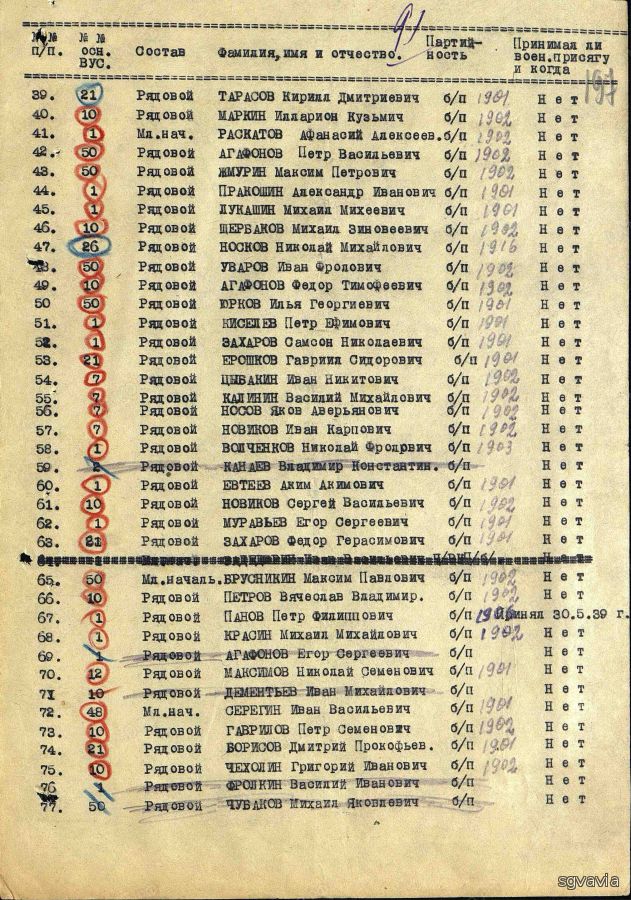 91
№№ п/п. № № осн. ВУС. Состав Фамилия, имя и отчество. Партий-ность Принимал ли воен.присягу и когда
197
39. 21 Рядовой ТАРАСОВ Кирилл Дмитриевич б/п 1901 Нет
40. 10 Рядовой МАРКИН Илларион Кузьмич б/п 1902 Нет
41. 1 Мл.нач. РАСКАТОВ Афанасий Алексеев. б/п 1902 Нет
42. 50 Рядовой АГАФОНОВ Петр Васильевич б/п 1902 Нет
43. 50 Рядовой ЖМУРИН Максим Петрович б/п 1902 Нет
44. 1 Рядовой ПРАКОШИН Александр Иванович б/п 1901 Нет
45. 1 Рядовой ЛУКАШИН Михаил Михеевич б/п 1901 Нет
46. 10 Рядовой ЩЕРБАКОВ Михаил Зиновеевич б/п 1902 Нет
47. 26 Рядовой НОСКОВ Николай Михайлович б/п 1916 Нет
48. 50 Рядовой УВАРОВ Иван Фролович б/п 1902 Нет
49. 10 Рядовой АГАФОНОВ Федор Тимофеевич б/п 1902 Нет
50 50 Рядовой ЮРКОВ Илья Георгиевич б/п 1901 Нет
51. 1 Рядовой КИСЕЛЕВ Петр Ефимович б/п 1901 Нет
52. 1 Рядовой ЗАХАРОВ Самсон Николаевич б/п 1901 Нет
53. 21 Рядовой ЕРОШКОВ Гавриил Сидорович б/п 1901 Нет
54. 7 Рядовой ЦЫБАКИН Иван Никитович б/п 1902 Нет
55. 7 Рядовой КАЛИНИН Василий Михайлович б/п 1902 Нет
56. 7 Рядовой НОСОВ Яков Аверьянович б/п 1902 Нет
57. 7 Рядовой НОВИКОВ Иван Карпович б/п 1902 Нет
58. 1 Рядовой ВОЛЧЕНКОВ Николай Фролрвич б/п 1903 Нет
59. 2 Рядовой КАНАЕВ Владимир Константин. б/п Нет
60. 1 Рядовой ЕВТЕЕВ Аким Акимович б/п 1901 Нет
61. 10 Рядовой НОВИКОВ Сергей Васильевич б/п 1902 Нет
62. 1 Рядовой МУРАВЬЕВ Егор Сергеевич б/п 1901 Нет
63. 21 Рядовой ЗАХАРОВ Федор Герасимович б/п 1901 Нет
Нет
65. 50 Мл.началь. БРУСНИКИН Максим Павлович б/п 1902 Нет
66. 10 Рядовой ПЕТРОВ Вячеслав Владимир. б/п 1902 Нет
67. 1 Рядовой ПАНОВ Петр Филиппович б/п Принял 30.5.39 г.
68. 1 Рядовой КРАСИН Михаил Михайлович б/п 1902 Нет
69. 1 Рядовой АГАФОНОВ Егор Сергеевич б/п Нет
70. 12 Рядовой МАКСИМОВ Николай Семенович б/п 1901 Нет
71 10 Рядовой ДЕМЕНТЬЕВ Иван Михайлович б/п Нет
72. 48 Мл.нач. СЕРЕГИН Иван Васильевич б/п 1901 Нет
73. 10 Рядовой ГАВРИЛОВ Петр Семенович б/п 1902 Нет
74. 21 Рядовой БОРИСОВ Дмитрий Прокофьев. б/п 1901 Нет
75. 10 Рядовой ЧЕХОЛИН Григорий Иванович б/п 1902 Нет
76 1 Рядовой ФРОЛКИН Василий Иванович б/п Нет
77. 50 Рядовой ЧУБАКОВ Михаил Яковлевич б/п Нет
sgvavia